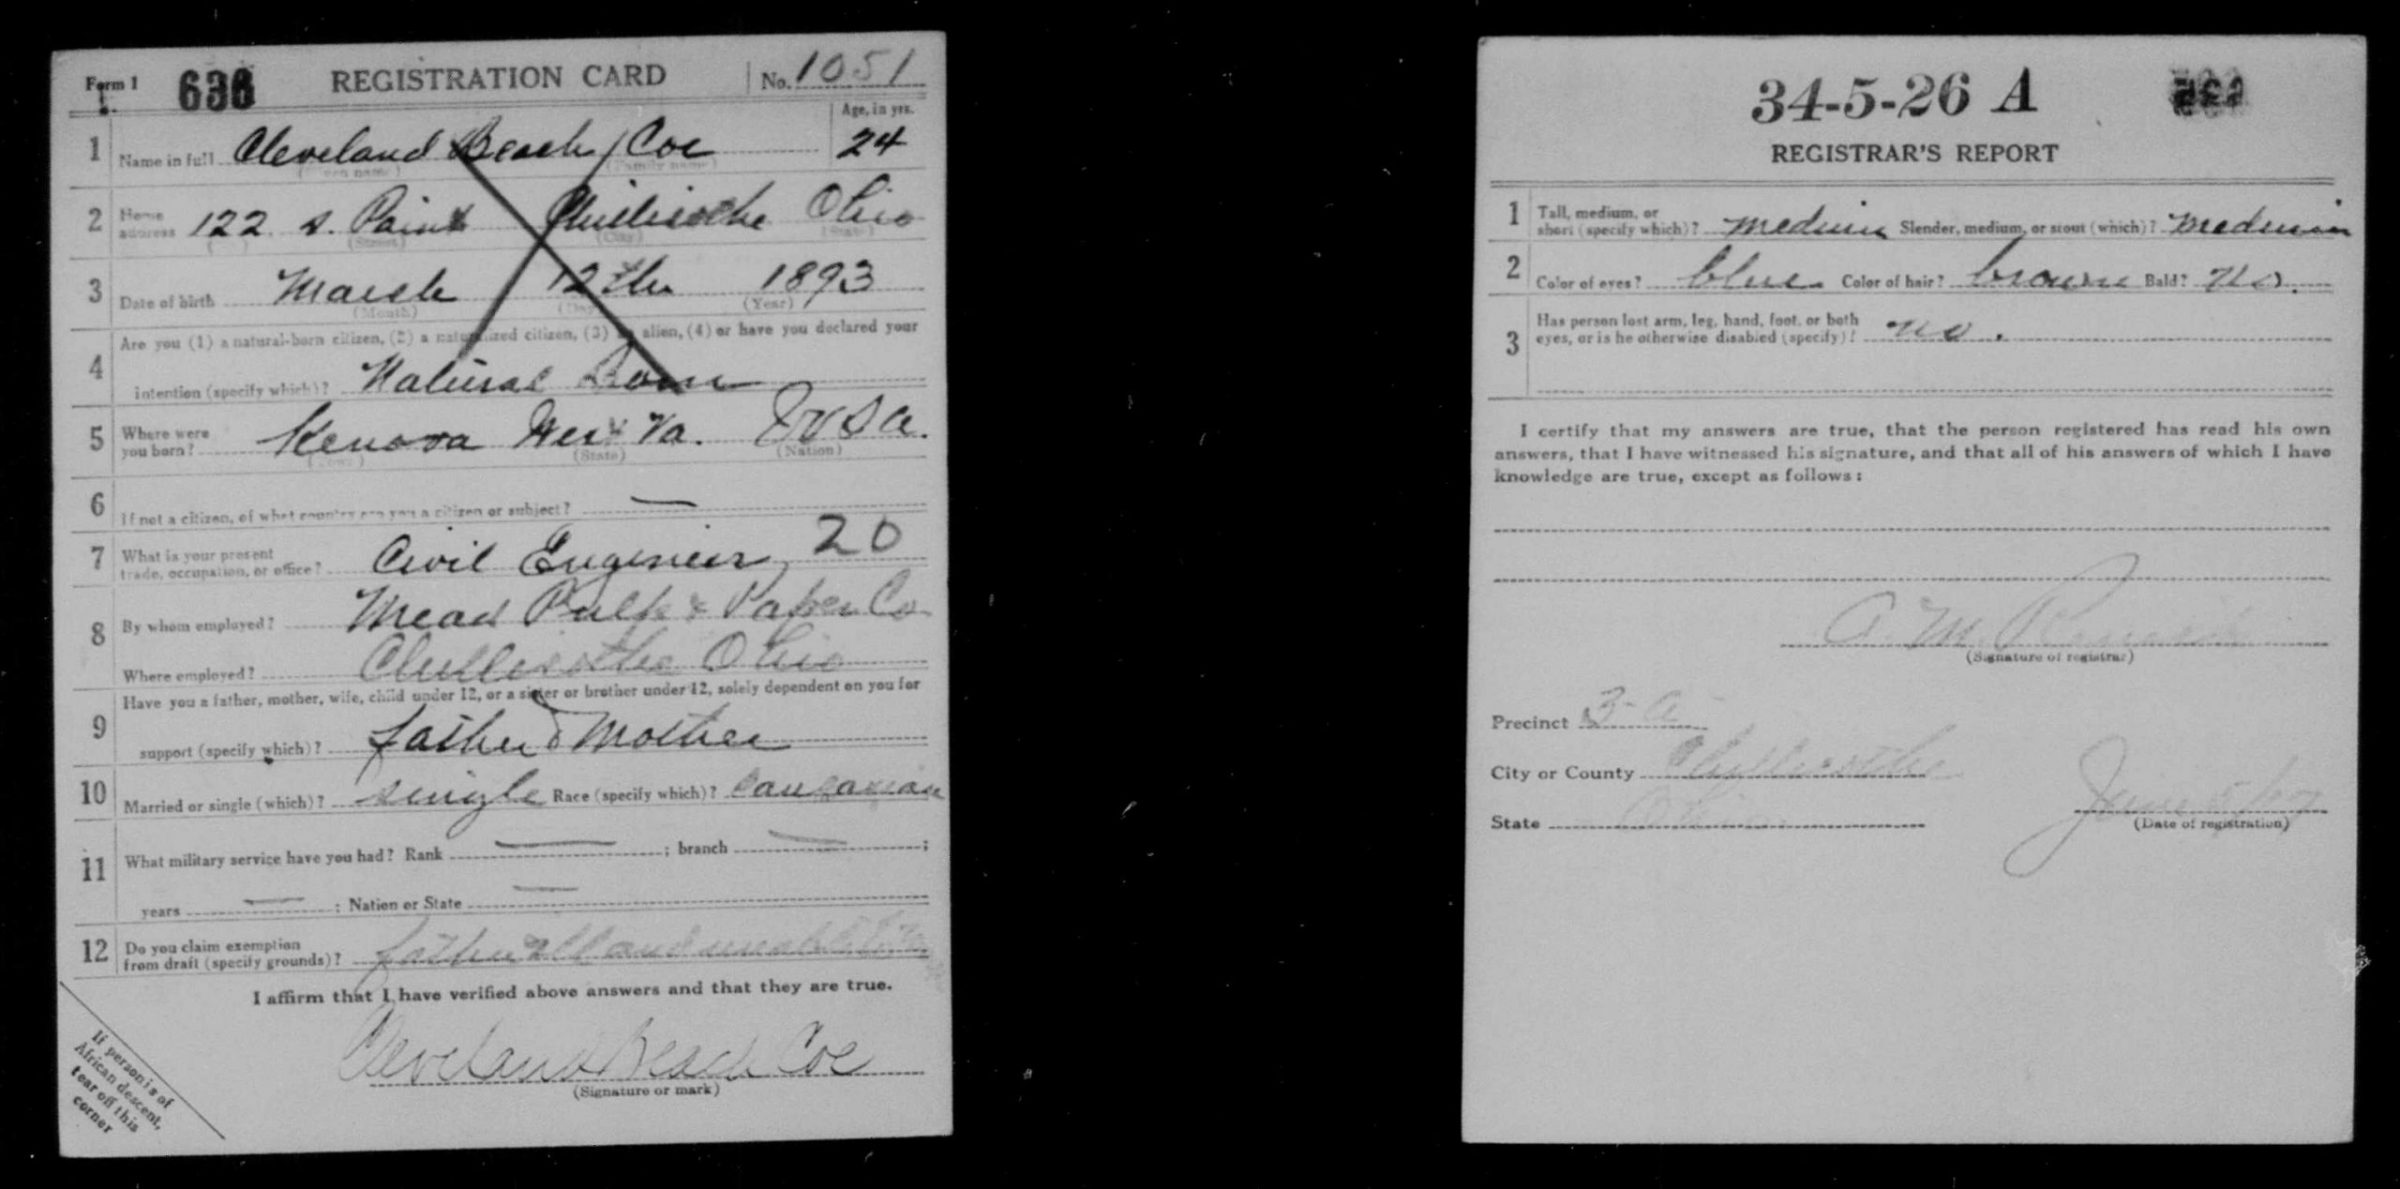 Form 1 636 REGISTRATION CARD No. 1051
Age, in yrs.
1 Name in full Cleveland Beach Coe 24
(Given name) (Family name)
2 Home address 122 S. Paint Chillicothe Ohio
(Street) (City) (State)
3 Date of birth March 12th 1893
(Month) (Day) (Year)
4 Are you (1) a natural-born citizen, (2) a naturalized citizen, (3) an alien, (4) or have you declared your
intention (specify which)? Natural Born
5 Where were you born? Kenova West Va. USA.
(Town) (State) (Nation)
6 If not a citizen, of what country are you a citizen or subject? —
7 What is your present trade, occupation, or office? Civil Engineer 20
8 By whom employed? Mead Pulp & Paper Co
Where employed? Chillicothe Ohio
9 Have you a father, mother, wife, child under 12, or a sister or brother under 12, solely dependent on you for
support (specify which)? father & mother
10 Married or single (which)? single Race (specify which)? Caucasian
11 What military service have you had? Rank — ; branch — ;
years — ; Nation or State —
12 Do you claim exemption from draft (specify grounds)? father and
I affirm that I have verified above answers and that they are true.
Cleveland Beach Coe
(Signature or mark)
If person is of
African descent,
tear off this
corner
34-5-26 A
REGISTRAR'S REPORT
1 Tall, medium, or short (specify which)? medium Slender, medium, or stout (which)? medium
2 Color of eyes? blue Color of hair? brown Bald? no.
3 Has person lost arm, leg, hand, foot, or both
eyes, or is he otherwise disabled (specify)? no.
I certify that my answers are true, that the person registered has read his own
answers, that I have witnessed his signature, and that all of his answers of which I have
knowledge are true, except as follows:
A. M.
(Signature of registrar)
Precinct 3-A
City or County Chillicothe
State Ohio June 5
(Date of registration)